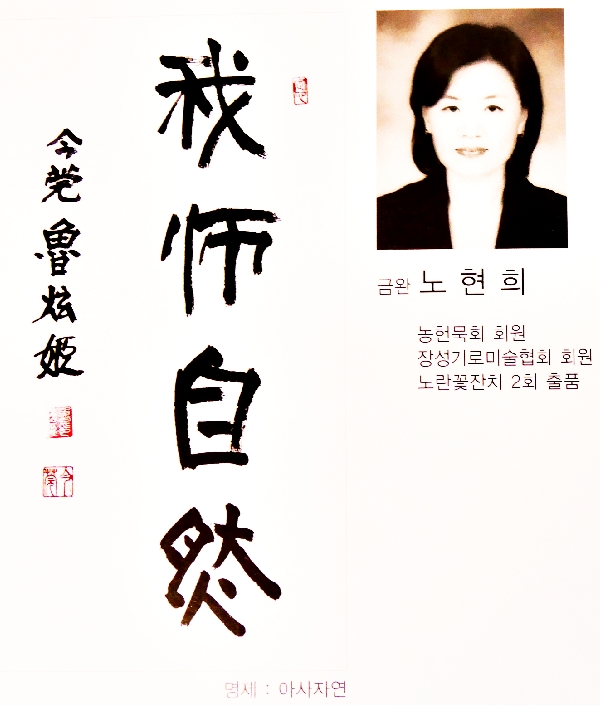 我师自然
今莞 魯炫姬
금완 노현희
농헌묵회 회원
장성기로미술협회 회원
노란꽃잔치 2회 출품
명제 : 아사자연